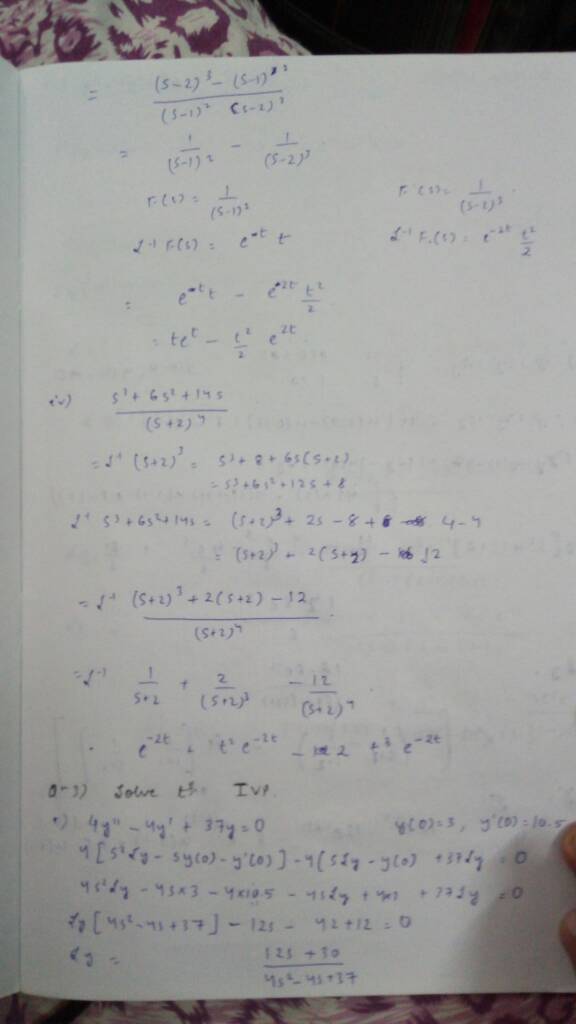 = ((s-2)³ - (s-1)²) / ((s-1)² (s-2)³)
= 1/(s-1)² - 1/(s-2)³
F.(s) = 1/(s-1)² F.(s) = 1/(s-2)³
ℒ⁻¹ F.(s) = e^t t ℒ⁻¹ F.(s) = e^-2t t²/2
= e^t t - e^2t t²/2
= te^t - t²/2 e^2t
iv) (s³ + 6s² + 14s) / (s+2)⁴
= ℒ⁻¹ (s+2)³ = s³ + 8 + 6s(s+2)
= s³ + 6s² + 12s + 8
ℒ⁻¹ s³ + 6s² + 14s = (s+2)³ + 2s - 8 + 4 - 4
= (s+2)³ + 2(s+2) - 12
= ℒ⁻¹ ((s+2)³ + 2(s+2) - 12) / (s+2)⁴
= ℒ⁻¹ 1/(s+2) + 2/(s+2)³ - 12/(s+2)⁴
e^-2t + t² e^-2t - 2 t³ e^-2t
Q-3) Solve the IVP.
4y'' - 4y' + 37y = 0 y(0) = 3, y'(0) = 10.5
4[s²ℒy - sy(0) - y'(0)] - 4[sℒy - y(0) + 37ℒy = 0
4s²ℒy - 4s×3 - 4×10.5 - 4sℒy + 4×3 + 37ℒy = 0
ℒy [4s² - 4s + 37] - 12s - 42 + 12 = 0
ℒy = (12s + 30) / (4s² - 4s + 37)